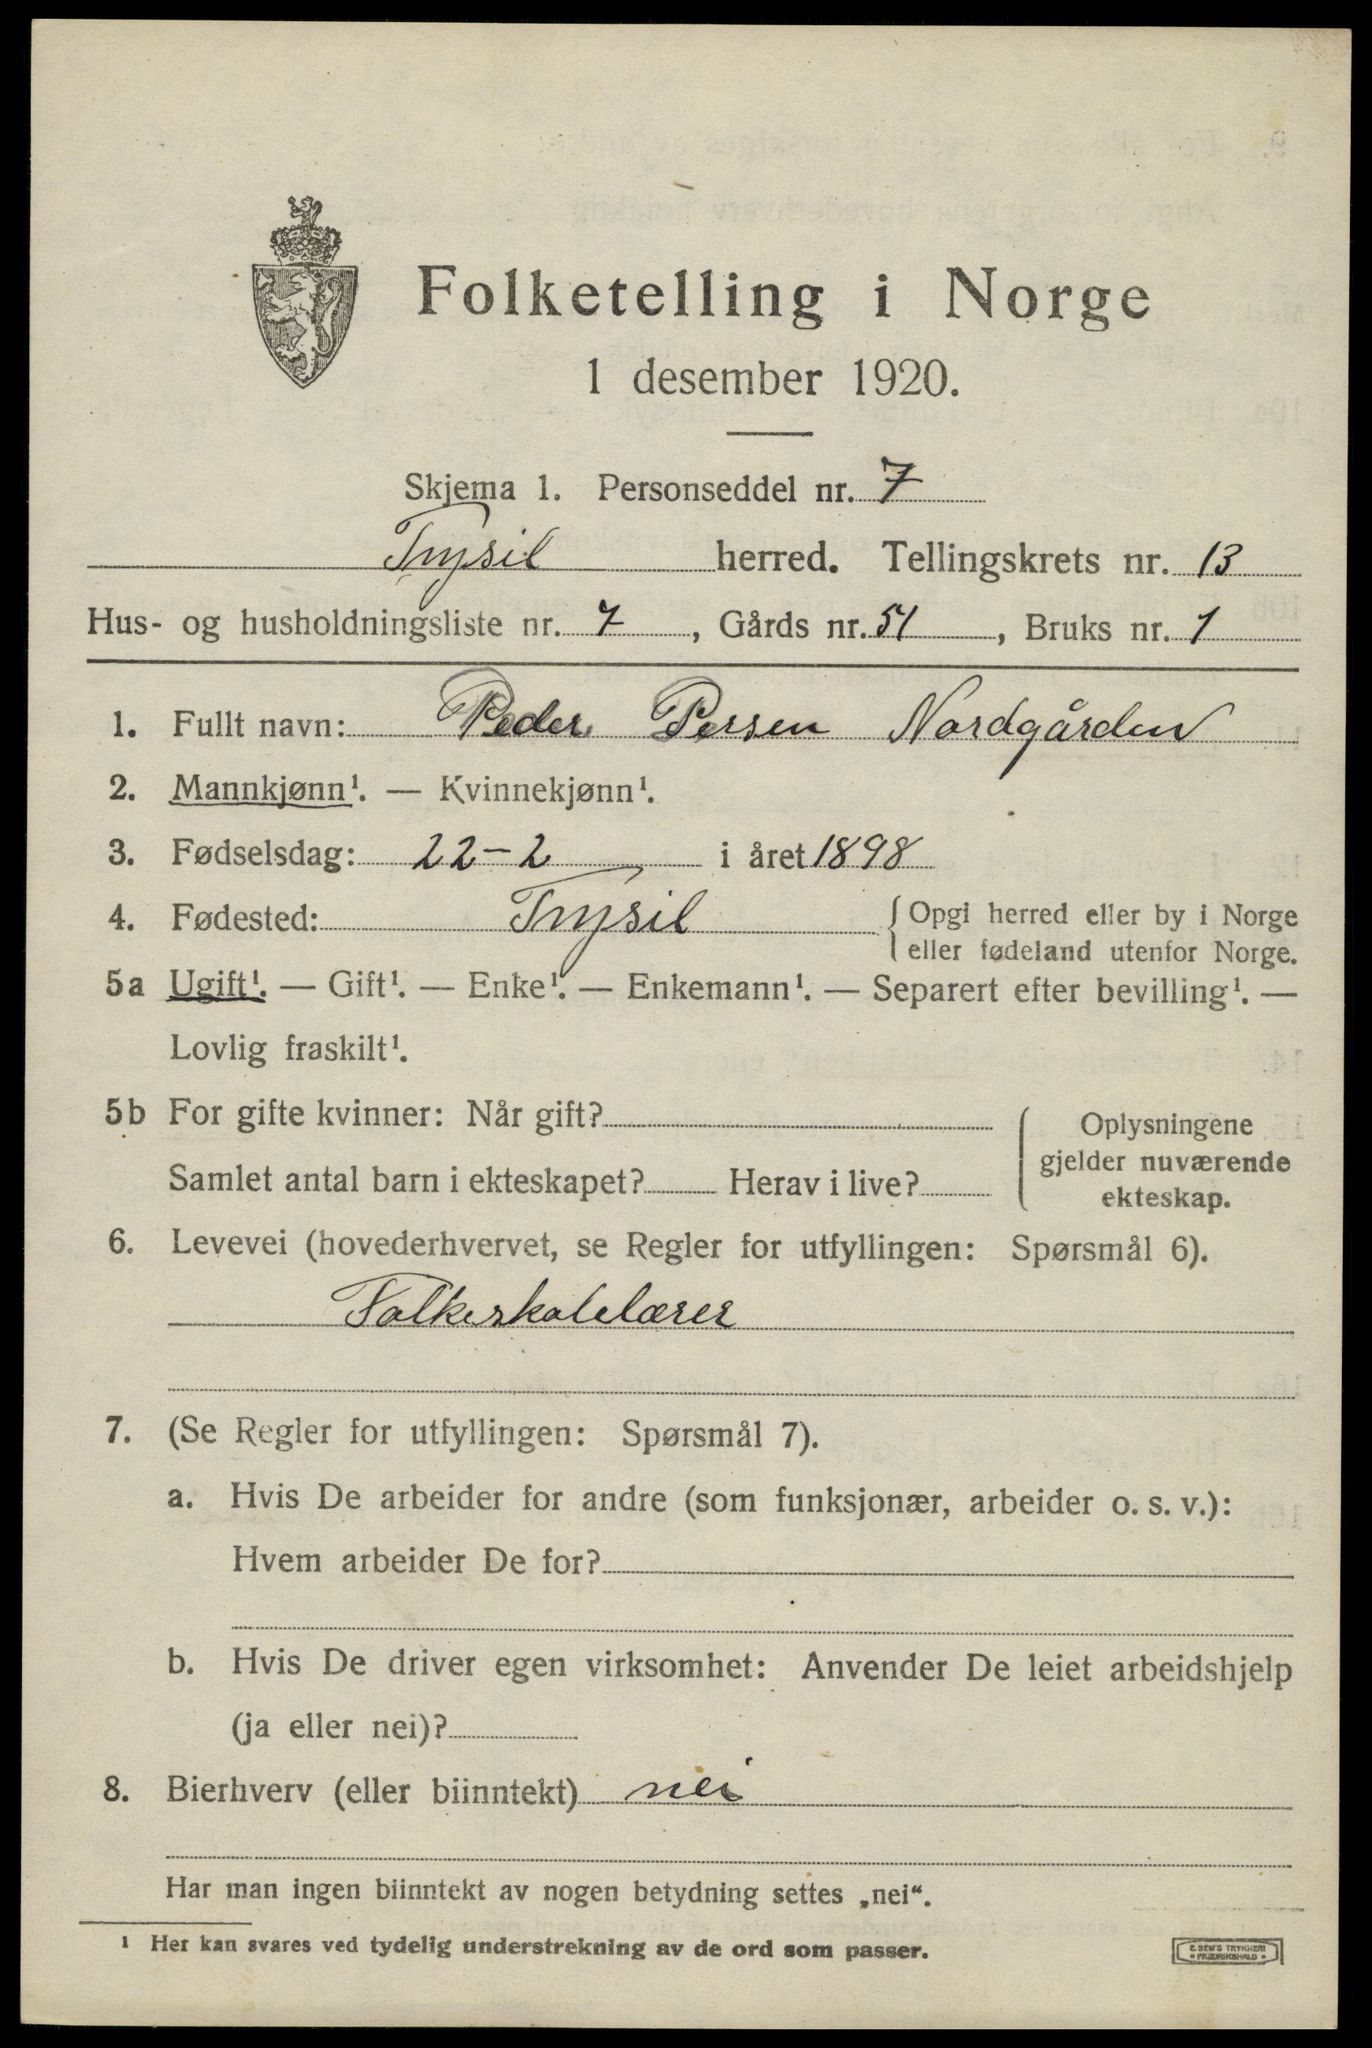 Folketelling i Norge
1 desember 1920.
Skjema 1. Personseddel nr. 7
Trysil herred. Tellingskrets nr. 13
Hus- og husholdningsliste nr. 7, Gårds nr. 51, Bruks nr. 1
1. Fullt navn: Peder Persen Nordgården
2. Mannkjønn¹. — Kvinnekjønn¹.
3. Fødselsdag: 22-2 i året 1898
4. Fødested: Trysil { Opgi herred eller by i Norge
eller fødeland utenfor Norge.
5a Ugift¹. — Gift¹. — Enke¹. — Enkemann¹. — Separert efter bevilling¹. —
Lovlig fraskilt¹.
5b For gifte kvinner: Når gift?
Samlet antal barn i ekteskapet? Herav i live?
Oplysningene
gjelder nuværende
ekteskap.
6. Levevei (hovederhvervet, se Regler for utfyllingen: Spørsmål 6).
Folkeskolelærer
7. (Se Regler for utfyllingen: Spørsmål 7).
a. Hvis De arbeider for andre (som funksjonær, arbeider o. s. v.):
Hvem arbeider De for?
b. Hvis De driver egen virksomhet: Anvender De leiet arbeidshjelp
(ja eller nei)?
8. Bierhverv (eller biinntekt) nei
Har man ingen biinntekt av nogen betydning settes „nei“.
¹ Her kan svares ved tydelig understrekning av de ord som passer.
E. SEM'S TRYKKERI
• FREDRIKSHALD •